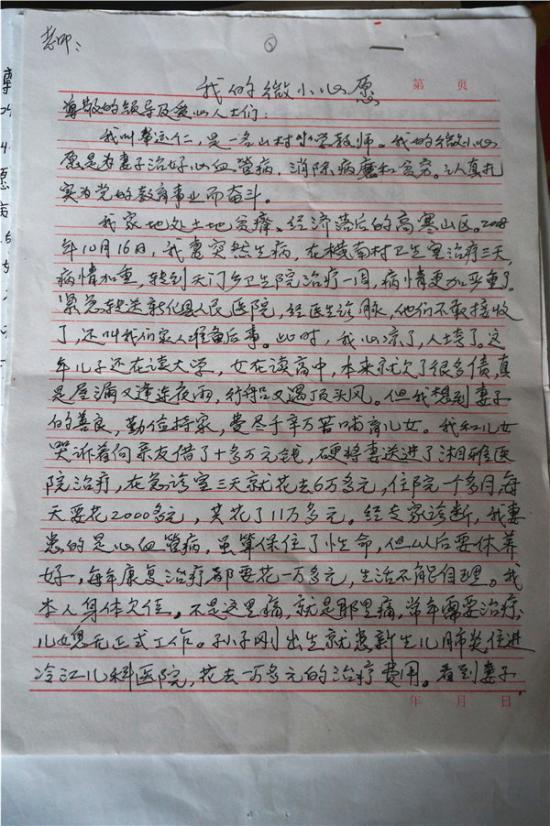 老师：
②
我的微小心愿
第 页
尊敬的领导及爱心人士们：
我叫 远仁，是一名山村小学教师。我的微小心
愿是为妻子治好心血管病，消除病魔和贫穷。认真扎
实为党的教育事业而奋斗。
我家地处土地贫瘠、经济落后的高寒山区。2008
年10月16日，我妻突然生病，在横南村卫生室治疗三天，
病情加重，转到天门乡卫生院治疗一周，病情更加严重了。
紧急转送新化县人民医院，经医生诊脉，他们不敢接收
了，还叫我们家人准备后事。此时，我心凉了，人 了。这
年儿子还在读大学，女在读高中，本来就欠了很多债，真
是屋漏又逢连夜雨，行船又遇顶头风。但我想到妻子
的善良，勤俭持家，费尽千辛万苦哺育儿女。我和儿女
哭诉着向亲友借了十多万元钱，硬将妻送进了湘雅医
院治疗，在急诊室三天就花去6万多元，住院一个多月，每
天要花2000多元，共花了11万多元。经专家诊断，我妻
患的是心血管病，虽算保住了性命，但以后要休养
好，每年康复治疗都要花一万多元，生活不能自理。我
本人身体欠佳。不是这里痛，就是那里痛，常年需要治疗；
儿女均无正式工作。孙子刚出生就患新生儿肺炎住进
冷江儿科医院，花去一万多元的治疗费用。看到妻子
年 月 日